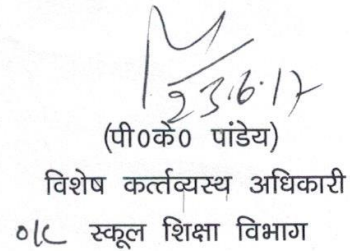 23.6.17
(पी०के० पांडेय)
विशेष कर्त्तव्यस्थ अधिकारी
o/c स्कूल शिक्षा विभाग